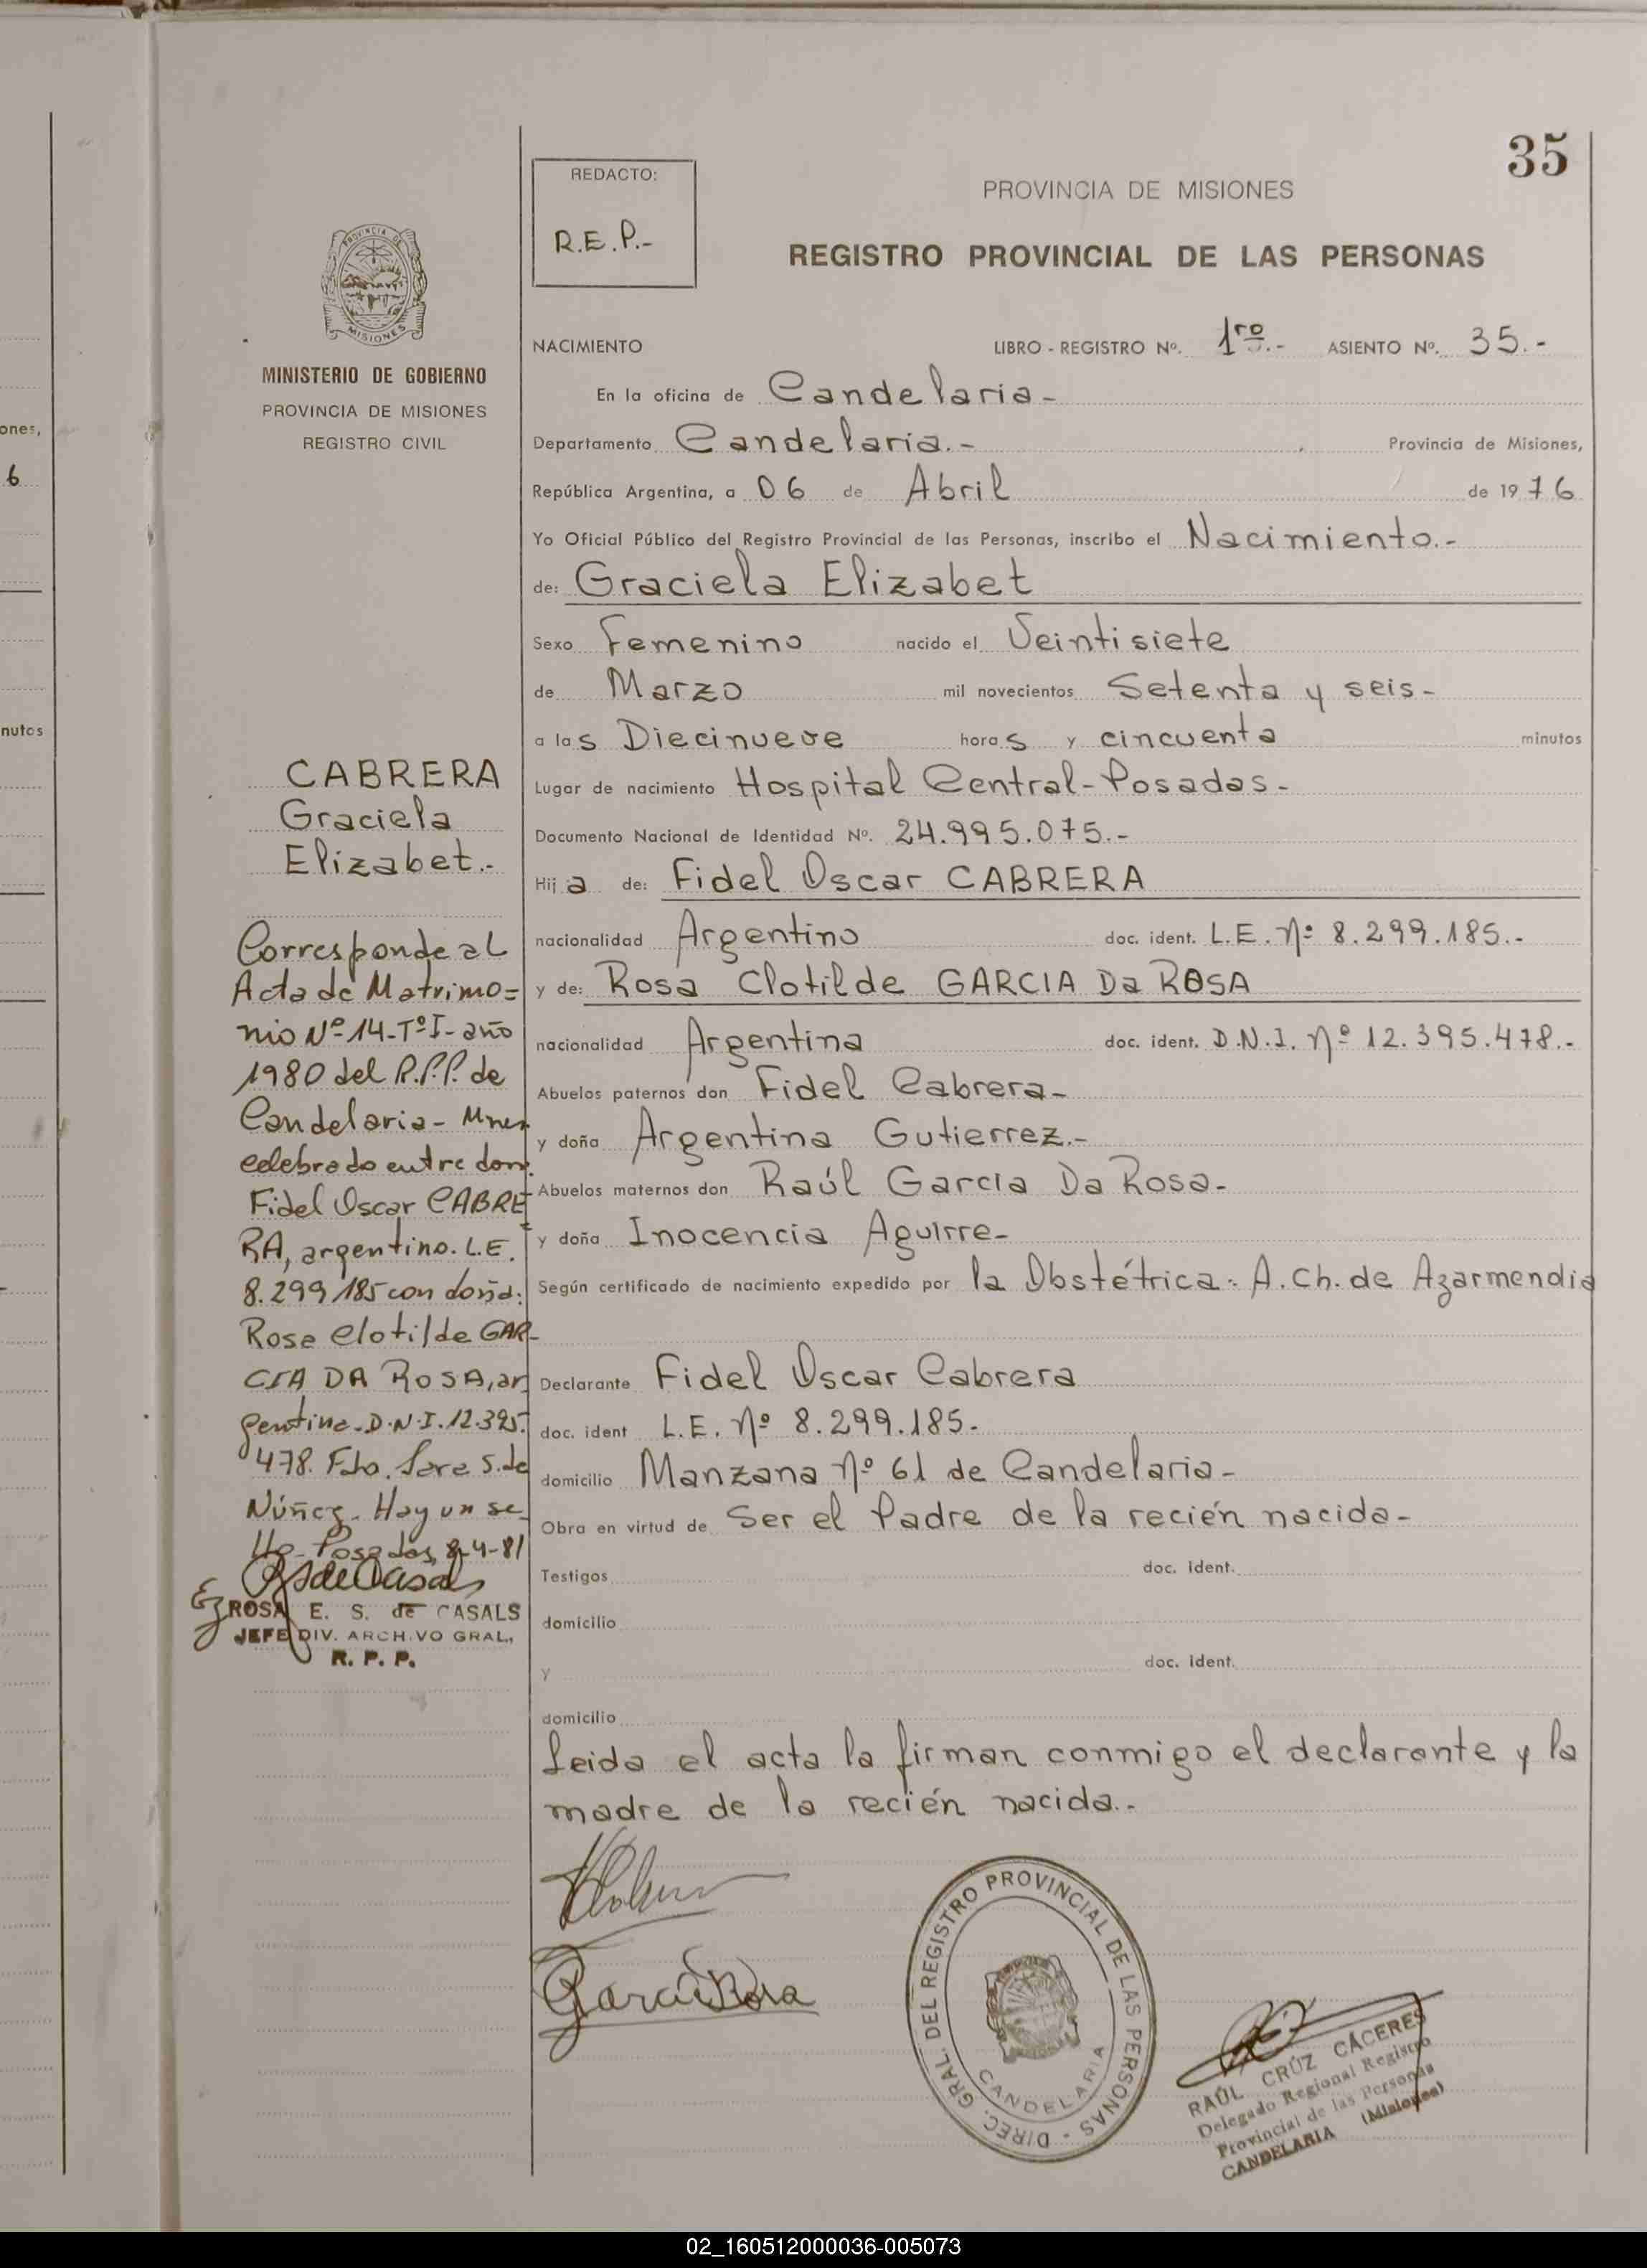 ones,
6
nutos
35
REDACTO:
R.E.P.-
PROVINCIA DE MISIONES
REGISTRO PROVINCIAL DE LAS PERSONAS
PROVINCIA DE
MISIONES
MINISTERIO DE GOBIERNO
PROVINCIA DE MISIONES
REGISTRO CIVIL
NACIMIENTO LIBRO - REGISTRO Nº. 1ro.- ASIENTO Nº. 35.-
En la oficina de Candelaria-
Departamento Candelaria.- Provincia de Misiones,
República Argentina, a 06 de Abril de 1976
Yo Oficial Público del Registro Provincial de las Personas, inscribo el Nacimiento.-
de: Graciela Elizabet
Sexo Femenino nacido el Veintisiete
de Marzo mil novecientos Setenta y seis-
a las Diecinueve horas y cincuenta minutos
Lugar de nacimiento Hospital Central-Posadas-
Documento Nacional de Identidad Nº. 24.995.075.-
Hija de: Fidel Oscar CABRERA
nacionalidad Argentino doc. ident. L.E. Nº 8.299.185.-
y de: Rosa Clotilde GARCIA Da ROSA
nacionalidad Argentina doc. ident. D.N.I. Nº 12.395.478.-
Abuelos paternos don Fidel Cabrera-
y doña Argentina Gutierrez.-
Abuelos maternos don Raúl Garcia Da Rosa-
y doña Inocencia Aguirre-
Según certificado de nacimiento expedido por la Obstétrica: A. Ch. de Azarmendia
Declarante Fidel Oscar Cabrera
doc. ident L.E. Nº 8.299.185-
domicilio Manzana Nº 61 de Candelaria-
Obra en virtud de Ser el Padre de la recién nacida-
Testigos doc. ident.
domicilio
y doc. ident.
domicilio
Leida el acta la firman conmigo el declarante y la
madre de la recién nacida.-
CABRERA
Graciela
Elizabet.-
Corresponde al
Acta de Matrimo=
nio Nº 14-Tº I- año
1980 del R.P.P. de
Candelaria- Mnes
celebrado entre don:
Fidel Oscar CABRE=
RA, argentino. L.E.
8.299 185 con doña:
Rosa Clotilde GAR-
CIA DA ROSA, ar
gentina. D.N.I. 12.395.
478. Fdo. Sara S. de
Núñez. Hay un se-
llo- Posadas, 8-4-81
ROSA E. S. de CASALS
JEFE DIV. ARCHIVO GRAL,
R. P. P.
Garcia Da Rosa
DIREC. GRAL. DEL REGISTRO PROVINCIAL DE LAS PERSONAS -
CANDELARIA
RAÚL CRÚZ CÁCERES
Delegado Regional Registro
Provincial de las Personas
CANDELARIA (Misiones)
02_160512000036-005073